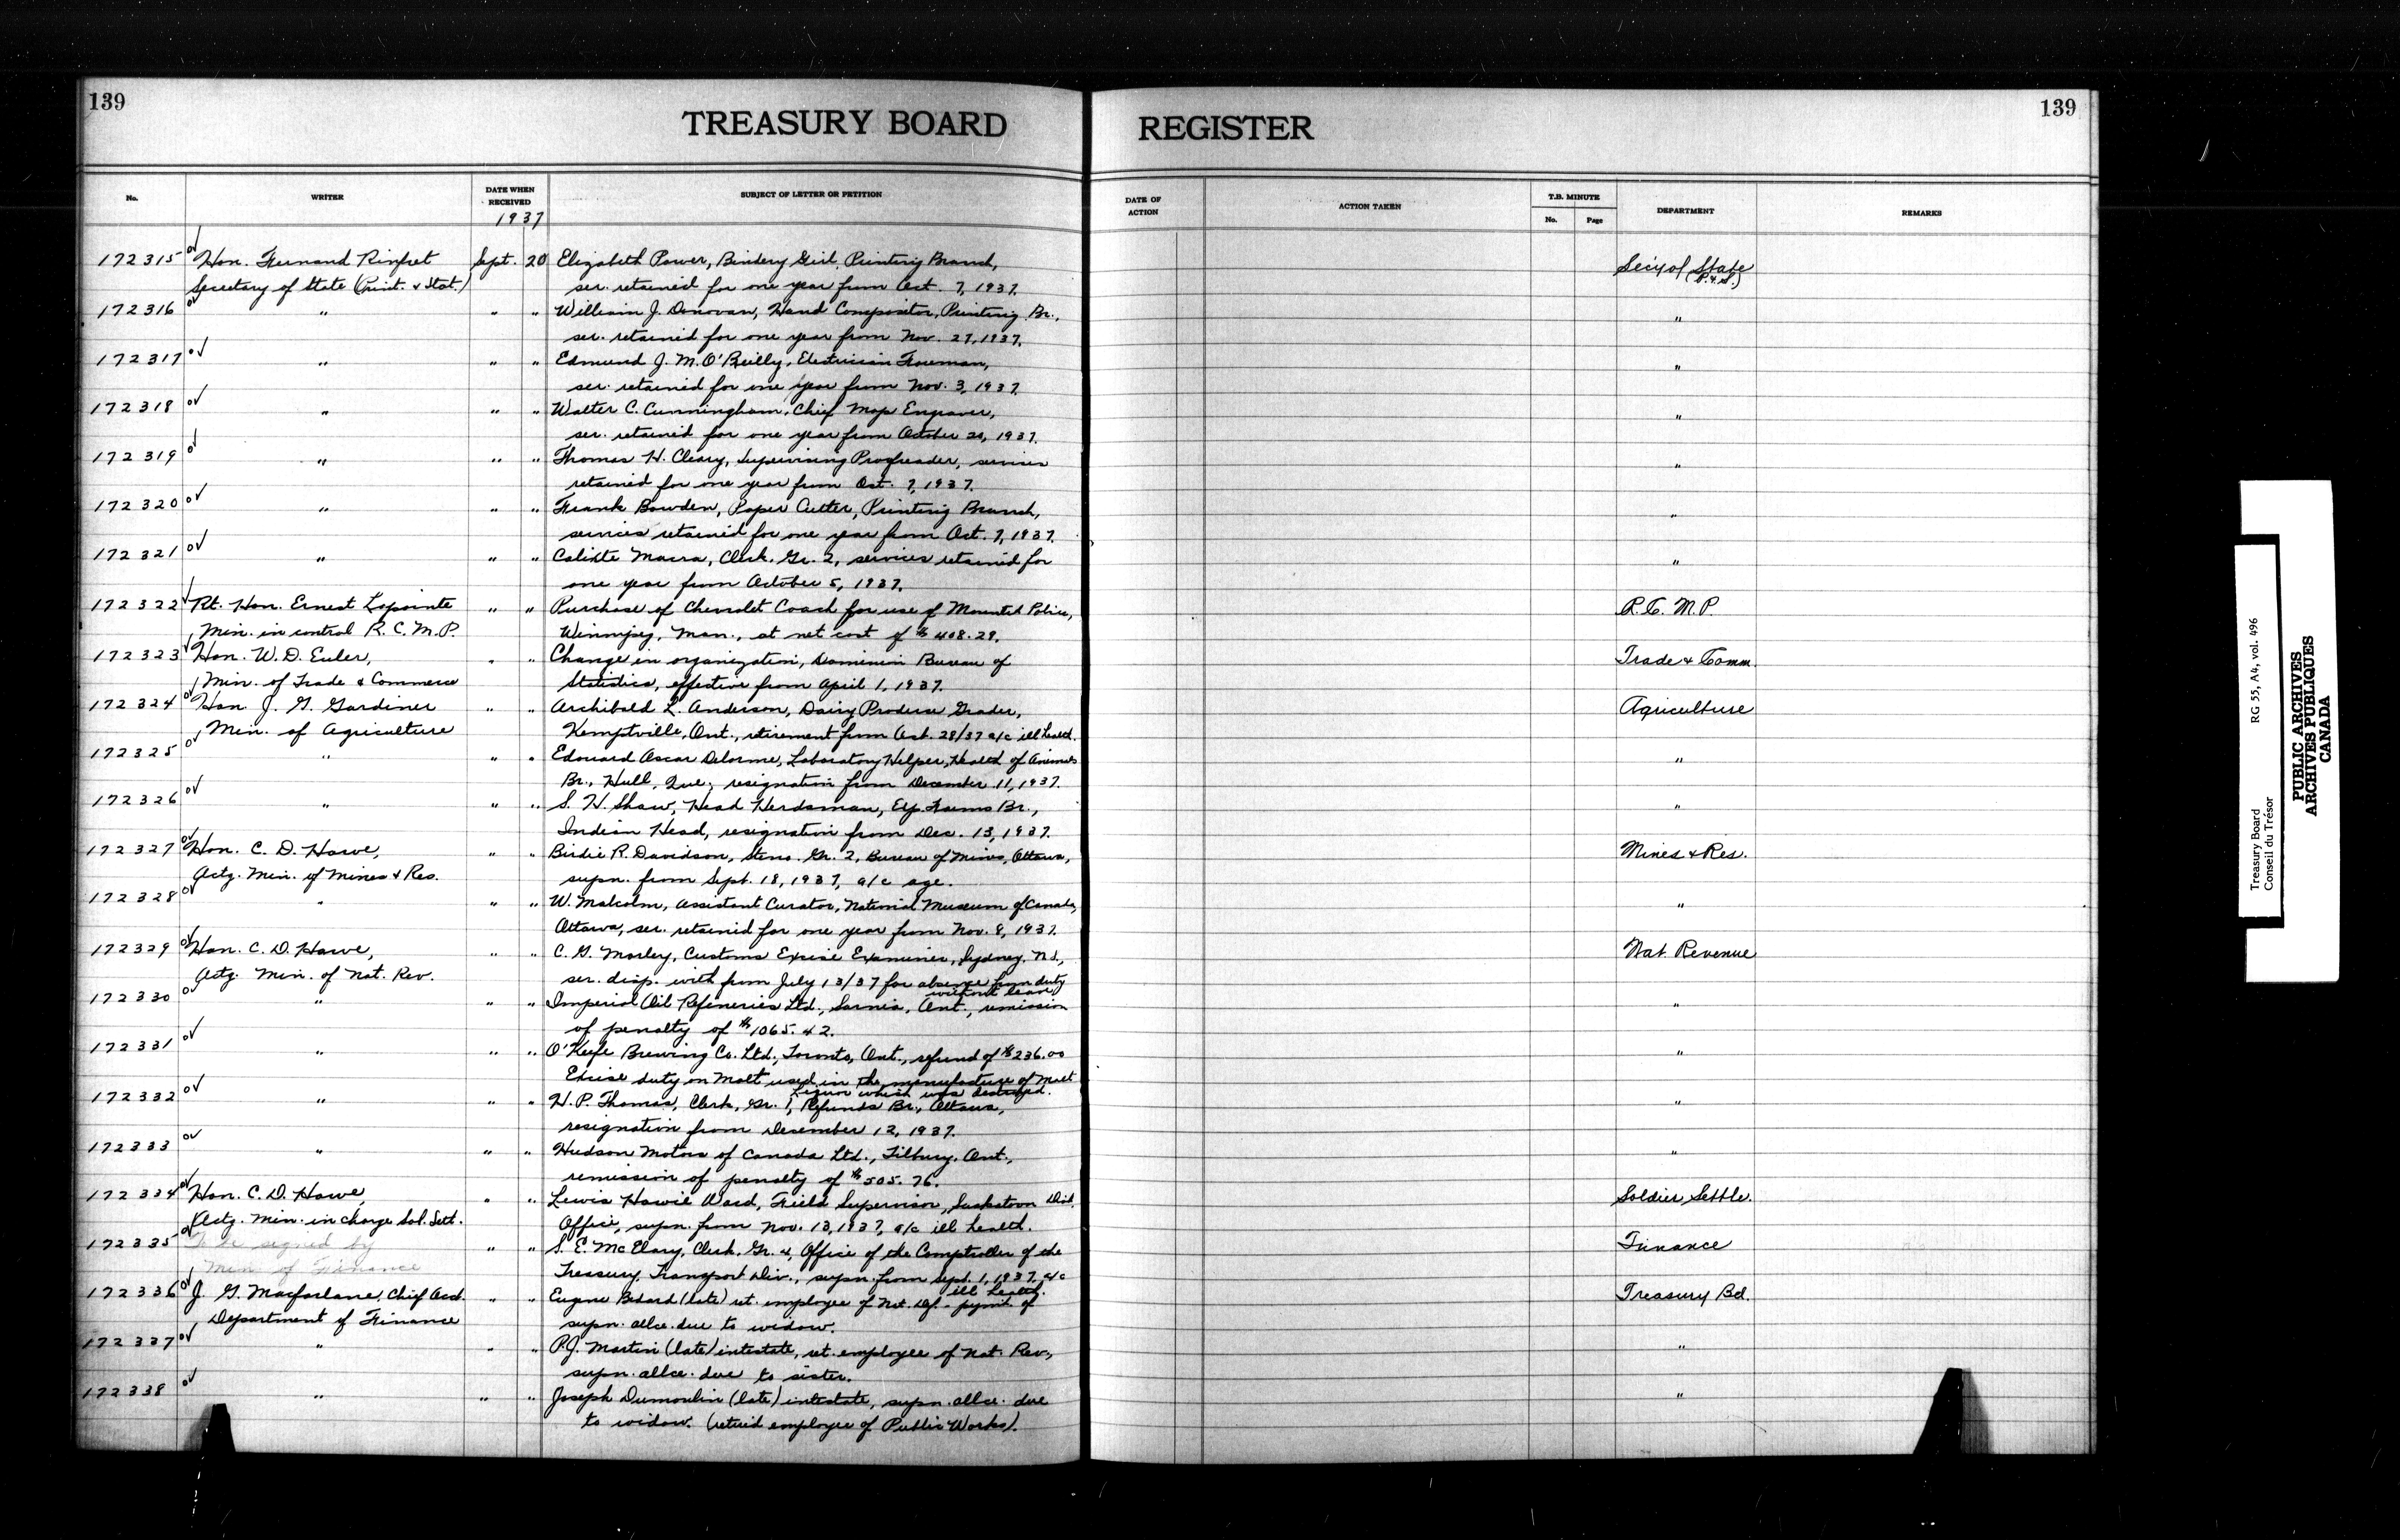 139
TREASURY BOARD
REGISTER
139
No.
WRITER
DATE WHEN RECEIVED
1937
SUBJECT OF LETTER OR PETITION
DATE OF ACTION
ACTION TAKEN
T.B. MINUTE
No.
Page
DEPARTMENT
REMARKS
172315 Hon. Fernand Rinfret Sept. 20 Elizabeth Power, Bindery Girl, Printing Branch, Sec'y of State
Secretary of State (Print. & Stat.) ser. retained for one year from Oct. 7, 1937. (P. & S.)
172316 " " " William J. Donovan, Hand Compositor, Printing Br., "
ser. retained for one year from Nov. 27, 1937.
172317 " " " Edmund J. M. O'Reilly, Electrician Foreman, "
ser. retained for one year from Nov. 3, 1937.
172318 " " " Walter C. Cunningham, Chief Map Engraver, "
ser. retained for one year from October 20, 1937.
172319 " " " Thomas H. Cleary, Supervising Proofreader, services "
retained for one year from Oct. 7, 1937.
172320 " " " Frank Bowden, Paper Cutter, Printing Branch, "
services retained for one year from Oct. 7, 1937.
172321 " " " Calixte Macra, Clerk, Gr. 2, services retained for "
one year from October 5, 1937.
172322 Rt. Hon. Ernest Lapointe " " Purchase of Chevrolet Coach for use of Mounted Police, R.C.M.P.
Min. in control R.C.M.P. Winnipeg, Man., at net cost of $408.29.
172323 Hon. W. D. Euler, " " Change in organization, Dominion Bureau of Trade & Comm.
Min. of Trade & Commerce Statistics, effective from April 1, 1937.
172324 Hon. J. G. Gardiner " " Archibald L. Anderson, Dairy Produce Grader, Agriculture
Min. of Agriculture Kemptville, Ont., retirement from Oct. 28/37 a/c ill health.
172325 " " " Edouard Oscar Delorme, Laboratory Helper, Health of Animals "
Br., Hull, Que., resignation from December 11, 1937.
172326 " " " S. H. Shaw, Head Herdsman, Exp. Farms Br., "
Indian Head, resignation from Dec. 13, 1937.
172327 Hon. C. D. Howe, " " Birdie R. Davidson, Steno. Gr. 2, Bureau of Mines, Ottawa, Mines & Res.
Actg. Min. of Mines & Res. supn. from Sept. 18, 1937, a/c age.
172328 " " " W. Malcolm, Assistant Curator, National Museum of Canada, "
Ottawa, ser. retained for one year from Nov. 8, 1937.
172329 Hon. C. D. Howe, " " C. G. Morley, Customs Excise Examiner, Sydney, N.S., Nat. Revenue
Actg. Min. of Nat. Rev. ser. disp. with from July 13/37 for absence from duty
without leave
172330 " " " Imperial Oil Refineries Ltd., Sarnia, Ont., remission "
of penalty of $1065.42.
172331 " " " O'Keefe Brewing Co. Ltd., Toronto, Ont., refund of $236.00 "
Excise duty on Malt used in the manufacture of Malt
Liquor which was destroyed.
172332 " " " H. P. Thomas, Clerk, Gr. 1, Refunds Br., Ottawa, "
resignation from December 12, 1937.
172333 " " " Hudson Motors of Canada Ltd., Tilbury, Ont., "
remission of penalty of $505.76.
172334 Hon. C. D. Howe, " " Lewis Howie Ward, Field Supervisor, Saskatoon Dist. Soldier Settle.
Actg. Min. in charge Sol. Sett. Office, supn. from Nov. 13, 1937, a/c ill health.
172335 To be signed by " " S. E. McElary, Clerk, Gr. 4, Office of the Comptroller of the Finance
Min. of Finance Treasury, Transport Div., supn. from Sept. 1, 1937, a/c
ill health.
172336 J. G. Macfarlane, Chief Acct. " " Eugene Bedard (late) ret. employee of Nat. Def. - pymt. of Treasury Bd.
Department of Finance supn. allce. due to widow.
172337 " " " P. J. Martin (late) intestate, ret. employee of Nat. Rev., "
supn. allce. due to sister.
172338 " " " Joseph Dumoulin (late) intestate, supn. allce. due "
to widow. (retired employee of Public Works).
Treasury Board RG 55, A4, vol. 496
Conseil du Trésor
PUBLIC ARCHIVES
ARCHIVES PUBLIQUES
CANADA